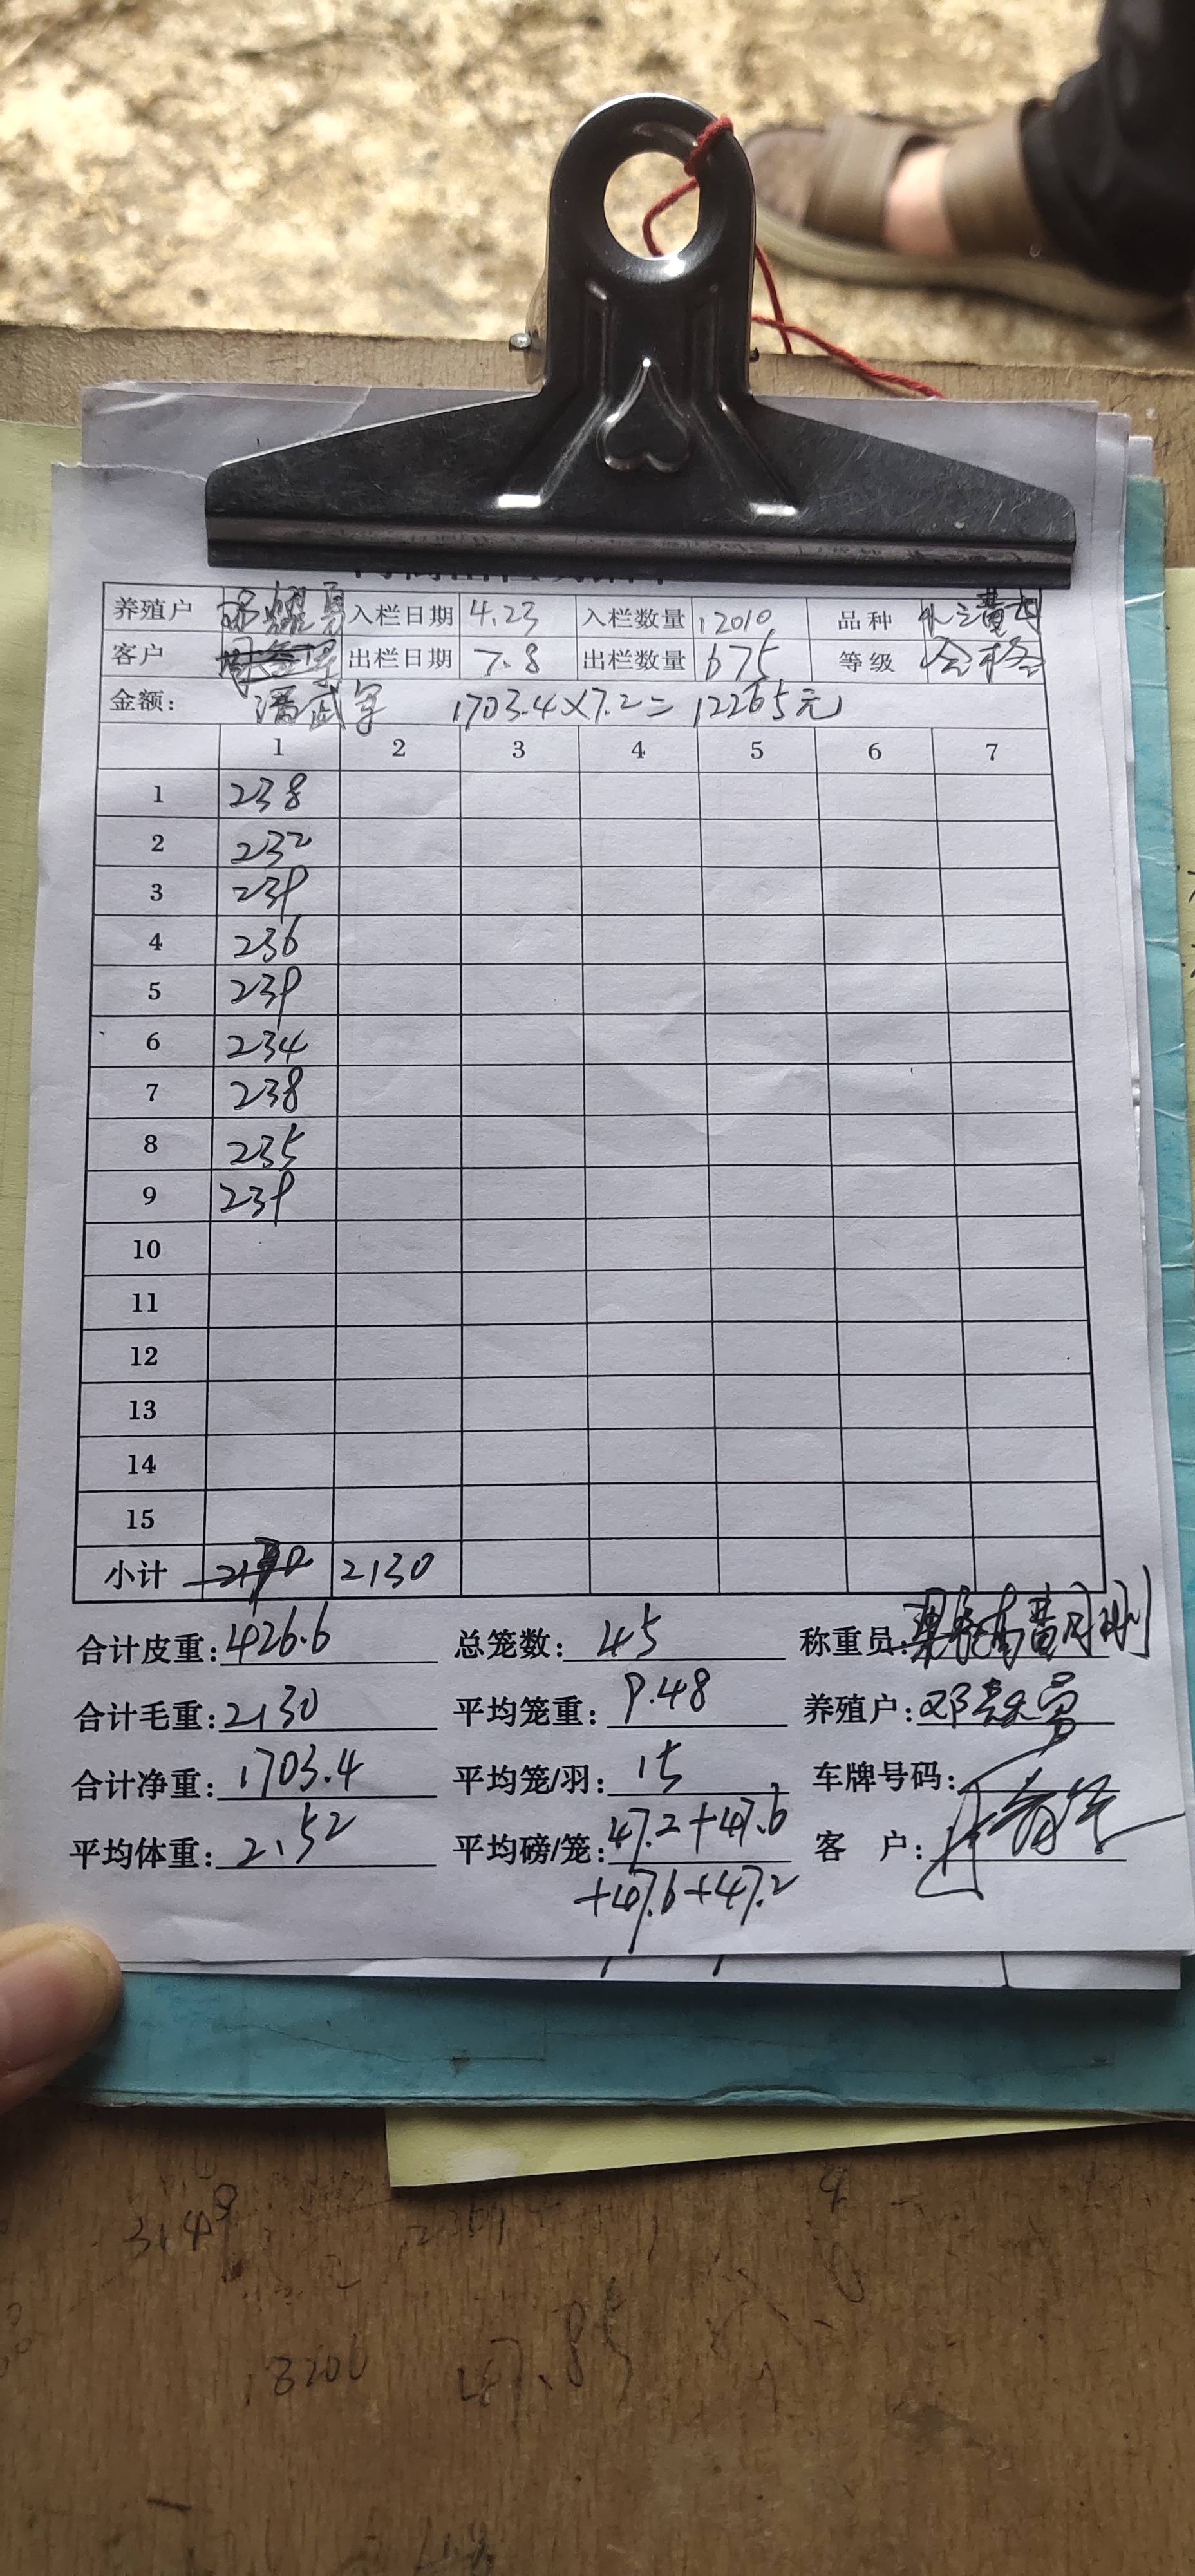 养殖户 邓耀勇 入栏日期 4.23 入栏数量 12010 品种
客户 出栏日期 7.8 出栏数量 675 等级 合格
金额: 潘武军 1703.4×7.2=12265元
1 2 3 4 5 6 7
1 238
2 232
3 239
4 236
5 239
6 234
7 238
8 235
9 239
10
11
12
13
14
15
小计 2130
合计皮重: 426.6 总笼数: 45 称重员:
合计毛重: 2130 平均笼重: 9.48 养殖户: 邓耀勇
合计净重: 1703.4 平均笼/羽: 15 车牌号码:
平均体重: 2.52 平均磅/笼: 47.2+47.6 客 户:
+47.6+47.2